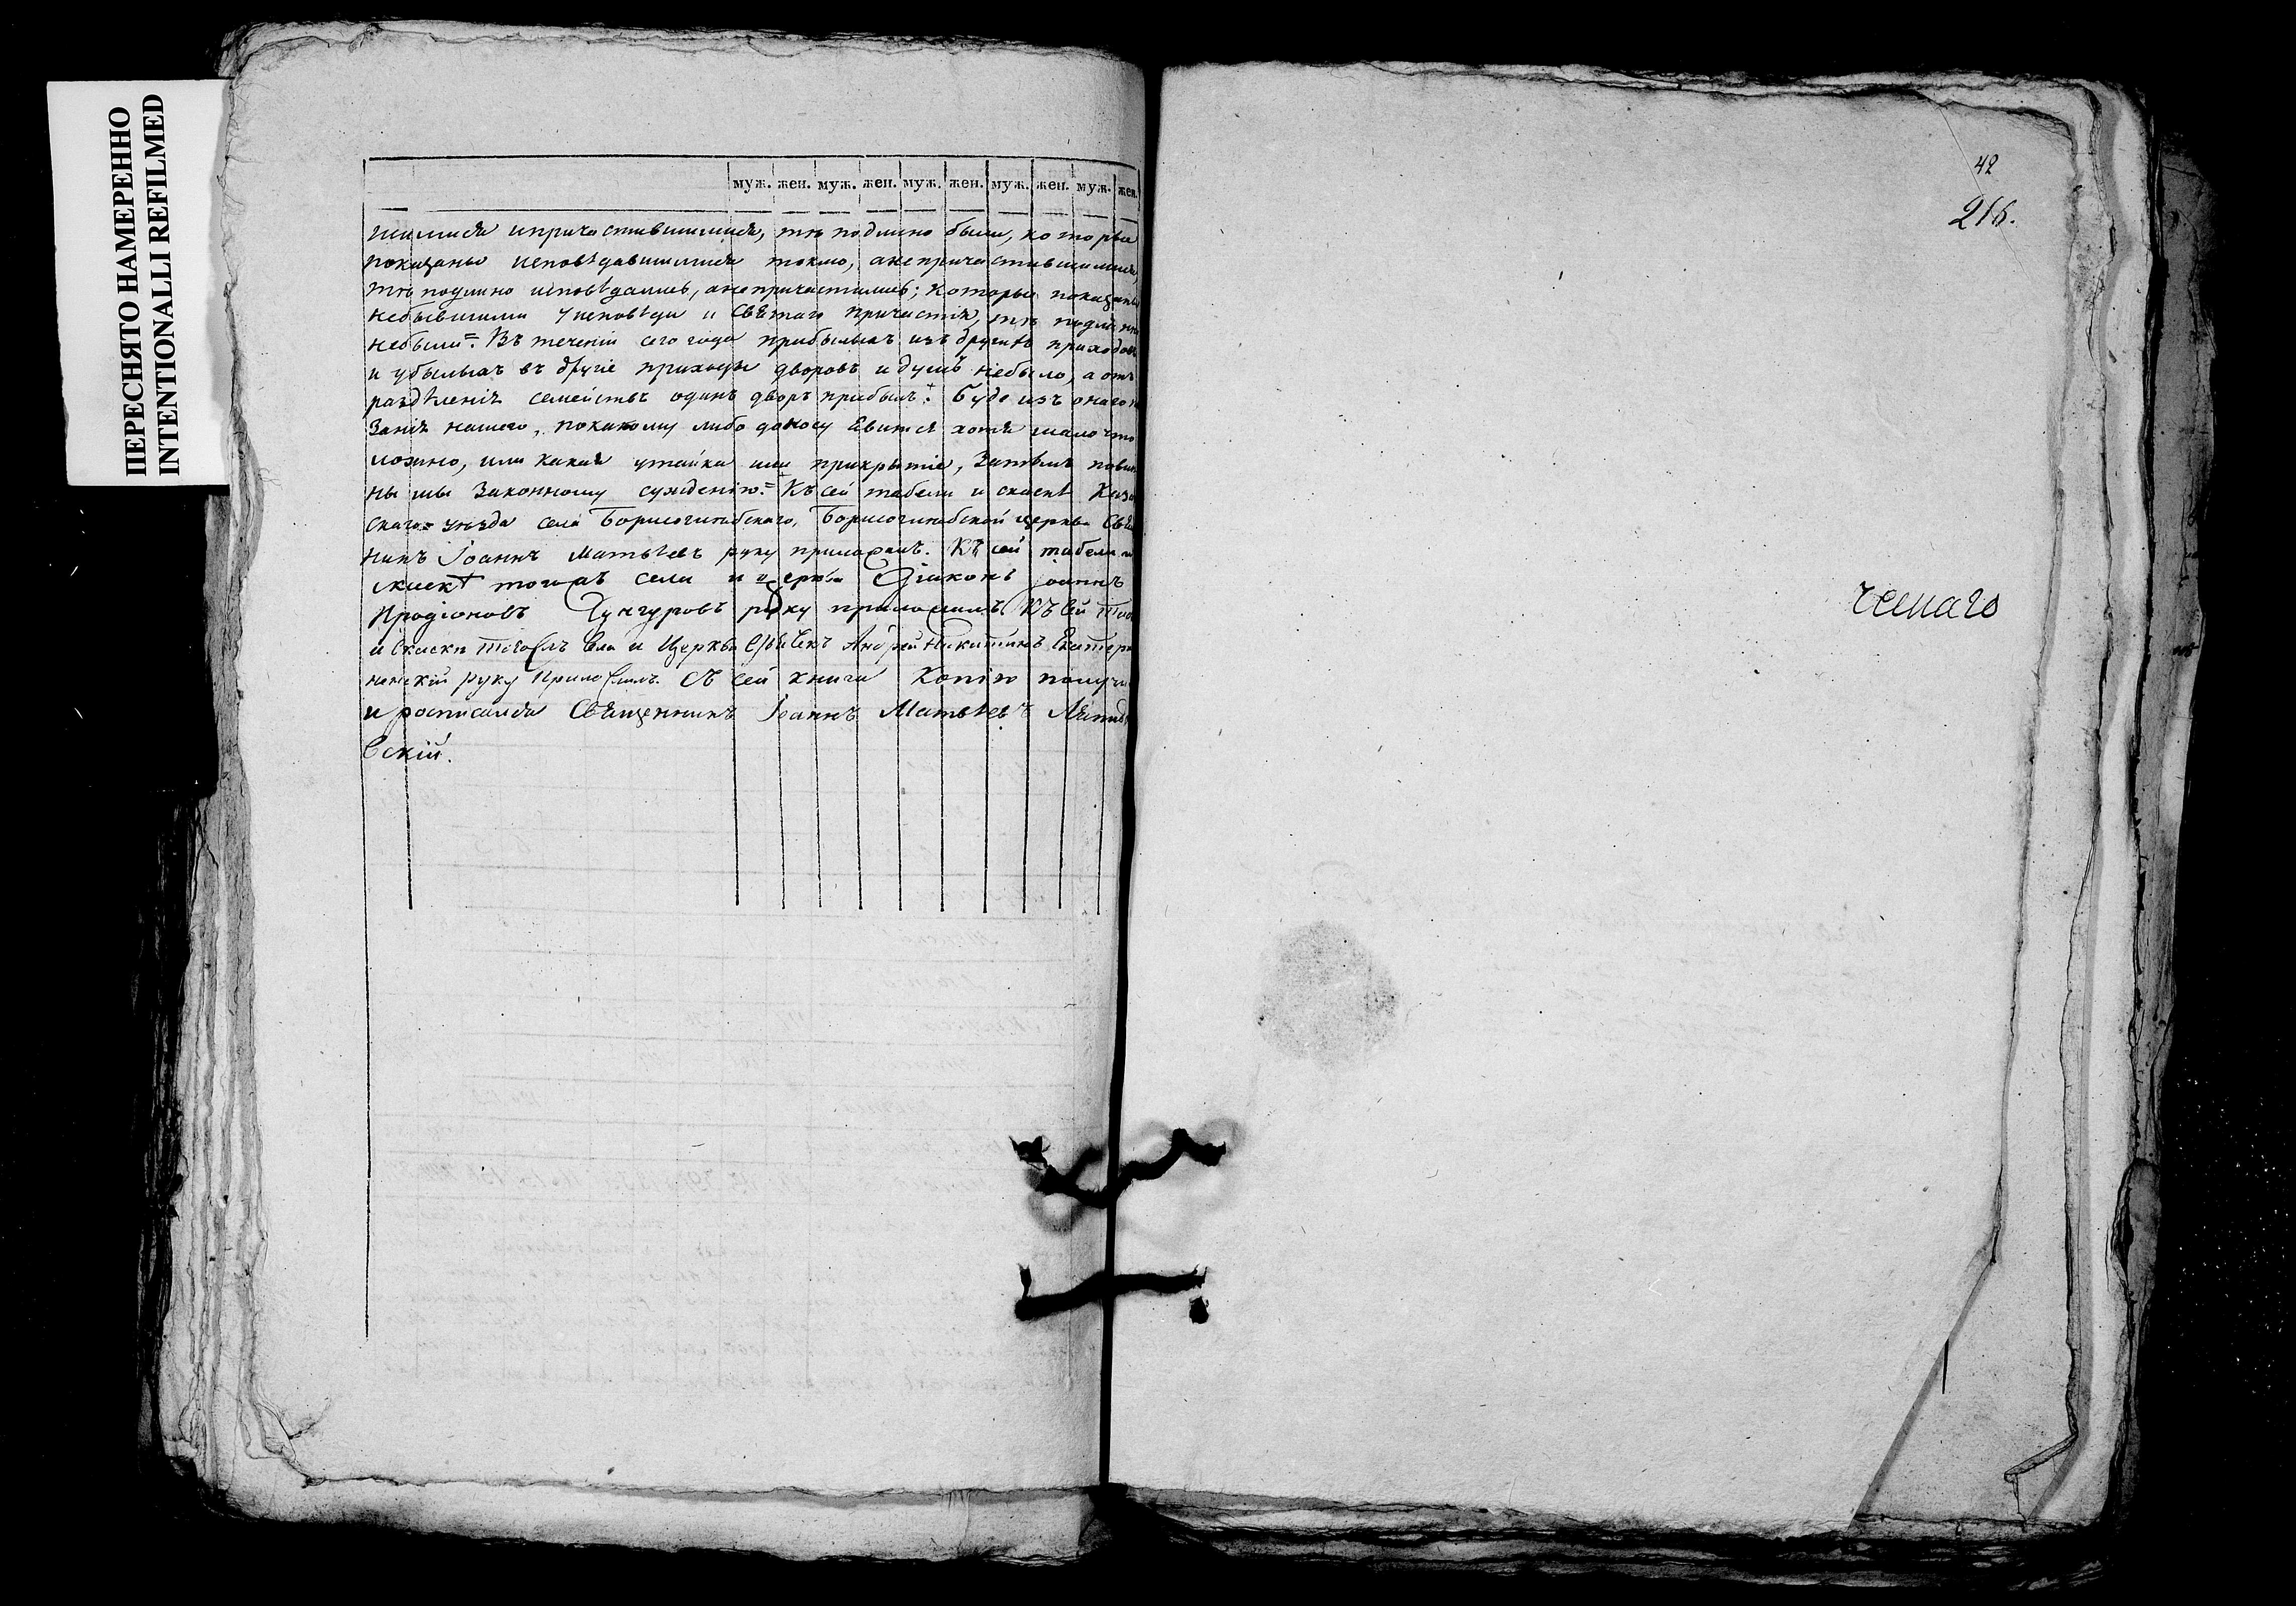 ПЕРЕСНЯТО НАМЕРЕННО
INTENTIONALLI REFILMED
муж. жен. муж. жен. муж. жен. муж. жен. муж. жен.
шимися ипричастившимися, тѣ подлино были, которые
показаны исповѣдавшимися токмо, анепричастившимися,
тѣ подлино исповѣдались, анепричастились; которые показаны
небывшими уисповѣди и Святаго причастія, тѣ подлинно
небыли. Въ теченіи сего года прибылыхъ изъ другихъ приходовъ
и убылыхъ въ другіе приходы дворовъ и душъ небыло, а отъ
раздѣленія семействъ одинъ дворъ прибылъ. Буде изъ онаго
занія нашего, покакому либо доносу явится хотя мало что
ложно, или какая утайка или прикрытіе, Затѣмъ повин
ны мы Законному сужденію. Къ сей табели и скаскѣ Каза
скаго уѣзда села Борисоглѣбскаго, Борисоглѣбской церкви Свя
никъ Іоаннъ Матвѣевъ руку приложилъ. Къ сей табели и
скаскѣ тогожъ села и церкви Діаконъ іоаннъ
Иродіоновъ руку приложилъ Къ сей таб
и скаски тогожъ села и Церкви Андрей Никитинъ Екатери
нскій руку Приложилъ. Съ сей книги Копію получи
и росписался Священникъ Іоаннъ Матвѣевъ
вскій.
42
216.
ческаго